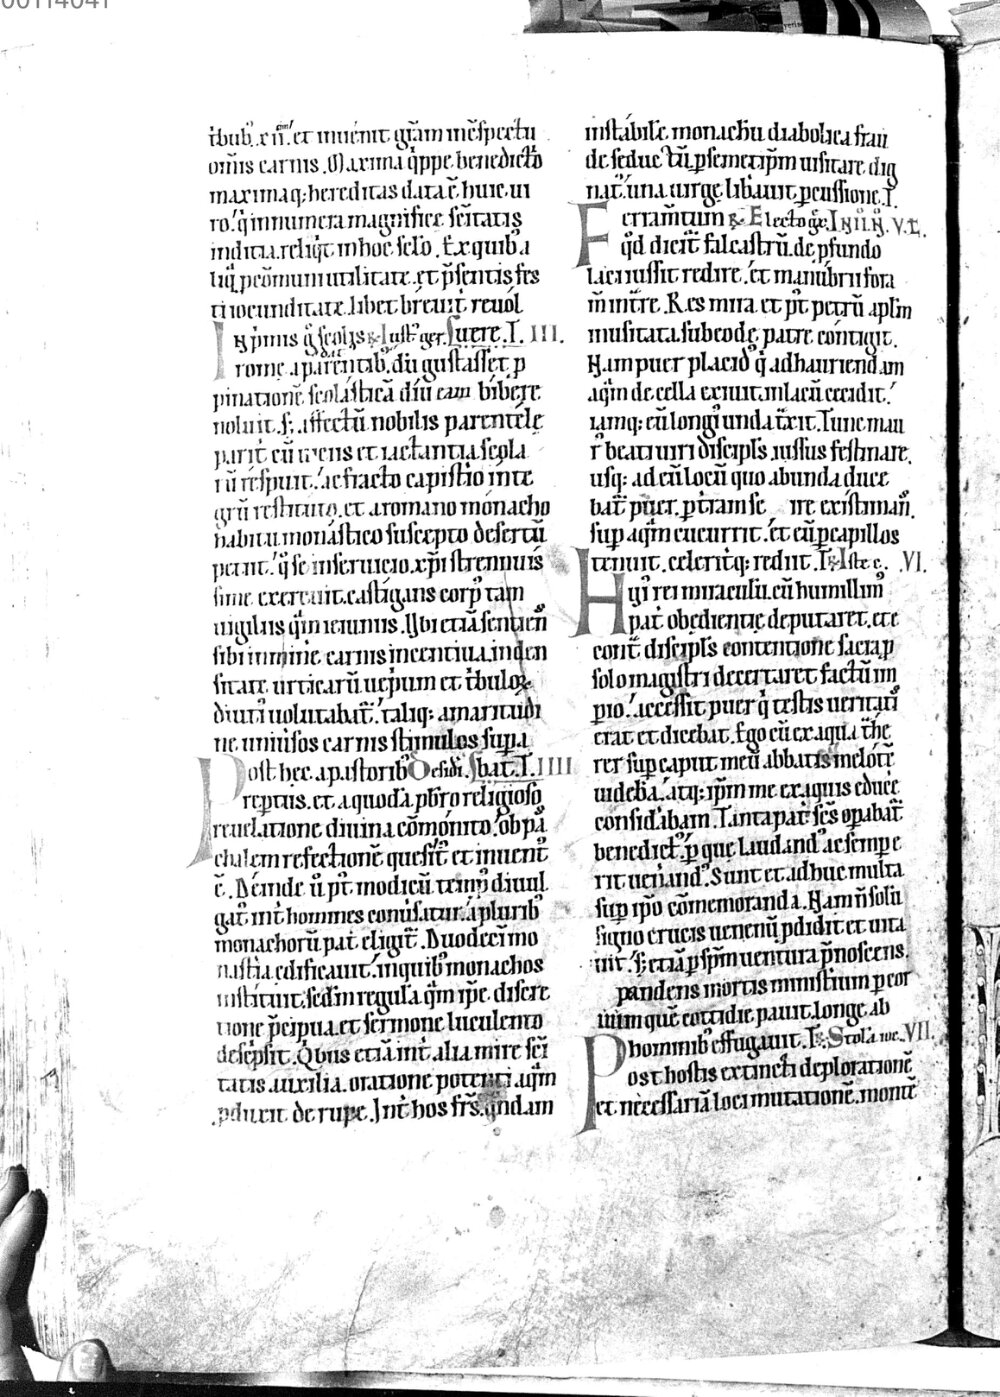 00114041
t̄bub᷒. et inuenit gr̄am in c̄spectu
om̄is carnis. Maxima q̄ppe benedictō
maximaq; hereditas data ē huic ui
ro. q̄ innumera magnifice sc̄itatis
inditia reliq̄t in hoc sc̄lo. Ex quib᷒ a
liq̄ p cōmuni utilitate. et p̄sentis fes
ti iocunditate libet breuit̄ reuol
III.
rome a parentib᷒. dū gustasset p
pinationē scolasticā diu eam bibere
noluit. s; affectū nobilis parentele
parit̄ cū opens et iactantia scola
rū respuit. ac fracto capistio inte
grū restituto. et a romano monacho
habitu monastico suscepto desertū
petiit. q̄ se in seruicio xp̄i strennuis
sime exercuit. castigans corp᷒ tam
uigiliis q̄m ieiuniis. Ubi etiā sentiens
sibi inmine carnis incentiua. in den
sitate urticarū uep̄um et t̄bulox
diuti᷒ uolutabat̄. taliq; amaritudi
ne uniuersos carnis stimulos supa
Post hec a pastorib᷒ IIII
reptus. et a quodā pb̄ro religioso
reuelatione diuina cōmonito. ob pa
schalem refectionē quesit᷒ et inuent᷒
ē. Deinde ū pt̄ modicū temp᷒ diuul
gat᷒ int̄ homines conuisatur. a plurib᷒
monachorū pat̄ eligit̄. Duodecim mo
nastia edificauit. in quib᷒ monachos
instituit. sed in regula q̄m ip̄e discre
tione p̄cipua. et sermone luculento
desc̄psit. Q̄bus etiā int̄ alia mire sc̄i
tatis auxilia. oratione potenti aq̄m
pduxit de rupe. Int̄ hos fr̄s. q̄ndam
instabile. monachū diabolica frau
de seductū. p semetip̄m uisitare dig
nat᷒. una uirge libauit percussione.
Ferramtum V. L.
qd dicit̄ falcastrū. de pfundo
laci iussit redire. et manubrii fora
m̄ intre. Res mira et pt̄ petrū ap̄lm
inusitata. sub eodē patre contigit.
Nam puer placid᷒ q̄ ad hauriendam
aq̄m de cella exiuit. in lacū cecidit.
iamq; eū longi᷒ unda t̄xit. Tunc mau
r᷒ beati uiri discipl̄s iussus festinare.
usq; ad eū locū quo ab unda duce
bat̄ puer. p t̄ram se ire existiman᷒.
sup aq̄m cucurrit. et eū p capillos
tenuit. celeritq; rediit. VI.
Hui᷒ rei miraculū. cū humillim᷒
pat̄ obedientie deputaret. et e
cont̄ discipl̄s contentione sacra p
solo magistri decertaret factū im
pio. accessit puer q̄ testis ueritati
erat et dicebat. Ego cū ex aqua t̄he
rer sup caput meū abbatis melotē
uideba. atq; ip̄m me ex aquis educe
considabam. Tanta pat̄ sc̄s opabat̄
benedict᷒. p que laudand᷒ ac sempe
rit uenand᷒. Sunt et adhuc multa
sup ip̄o cōmemoranda. Nam n̄ solū
signo crucis uenenū pdidit et uita
uit. s; etiā p sp̄m uentura p̄noscens.
pandens mortis ministium p cor
uum quē cottidie pauit. longe ab
hominib᷒ effugauit. VII.
Post hostis extincti deplorationē
et necessariā loci mutationē. montē